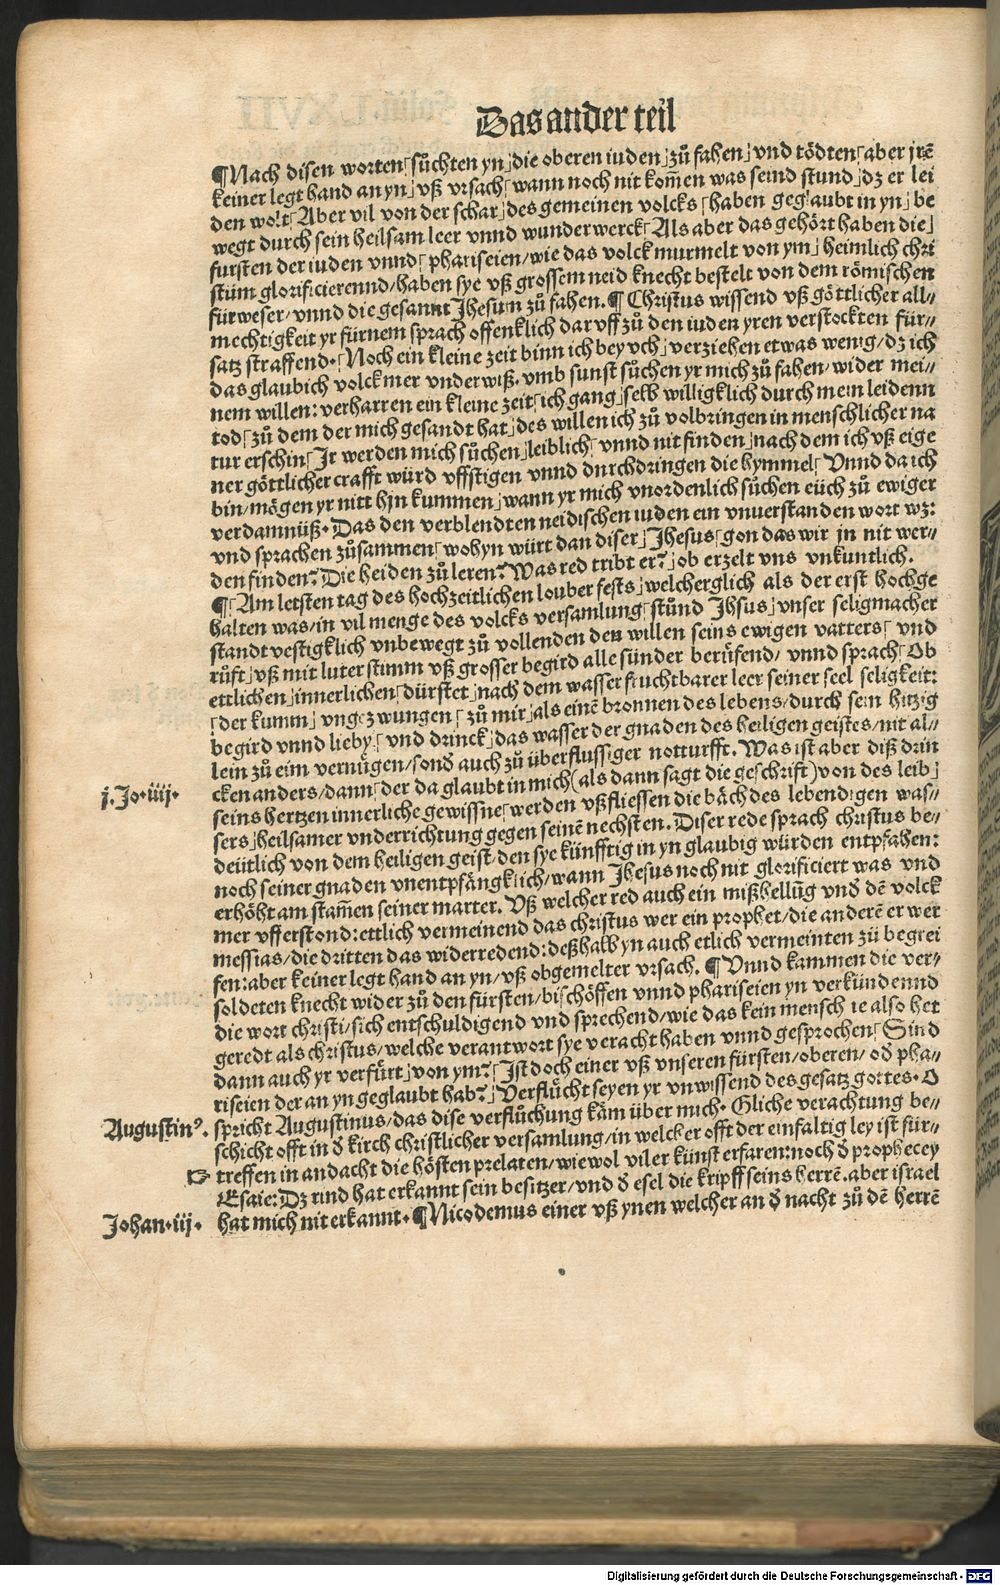 Das ander teil
¶Nach disen worten⌈sůchten yn⌋die oberen iuden⌋zů fahen⌋vnd tödten⌈aber jrē
keiner legt hand an yn⌋vß vrsach⌈wann noch nit kom̄en was seind stund⌋dz er lei
den wolt⌈Aber vil von der schar⌋des gemeinen volcks⌈haben geglaubt in yn⌋be
wegt durch sein heilsam leer vnnd wunderwerck⌈Als aber das gehört haben die⌋
fursten der iuden vnnd⌈phariseien/wie das volck murmelt von ym⌋heimlich chri
stum glorificierennd/haben sye vß grossem neid knecht bestelt von dem römischen
fürweser/vnnd die gesannt Jhesum zů fahen.¶Christus wissend vß göttlicher all⸗
mechtigkeit yr fürnem sprach offenklich dar vff zů den iuden yren verstockten für⸗
satz straffend.⌈Noch ein kleine zeit binn ich bey vch⌋verziehen etwas wenig/dz ich
das glaubich volck mer vnderwiß.vmb sunst sůchen yr mich zů fahen/wider mei⸗
nem willen:verharren ein kleine zeit⌈ich gang⌋selb willigklich durch mein leidenn
tod⌈zů dem der mich gesandt hat⌋des willen ich zů volbringen in menschlicher na
tur erschin⌈Jr werden mich sůchen⌋leiblich⌈vnnd nit finden⌋nach dem ich vß eige
ner göttlicher crafft würd vffstigen vnnd durchdringen die hymmel⌈Vnnd da ich
bin/mögen yr nitt hyn kummen⌋wann yr mich vnordenlich sůchen eüch zů ewiger
verdamnüß.Das den verblendten neidischen iuden ein vnuerstanden wort wz:
vnd sprachen zůsammen⌈wohyn würt dan diser⌋Jhesus⌈gon das wir jn nit wer⸗
den finden?Die heiden zů leren?Was red tribt er?⌋ob erzelt vns vnkuntlich.
¶⌈Am letsten tag des hochzeitlichen louber fests⌋welcher glich als der erst hochge
halten was/in vil menge des volcks versamlung⌈stůnd Jhsus⌋vnser seligmacher
standt vestigklich vnbewegt zů vollenden den willen seins ewigen vatters⌈vnd
růfft⌋vß mit luter stimm vß grosser begird alle sünder berüfend/vnnd sprach⌈Ob
ettlichen⌋innerlichen⌈dürstet⌋nach dem wasser fruchtbarer leer seiner seel seligkeit:
⌈der kumm⌋vngezwungen⌈zů mir⌋als einē bronnen des lebens/durch sein hitzig
begird vnnd lieby⌈vnd drinck⌋das wasser der gnaden des heiligen geistes/nit al⸗
lein zů eim vernügen/sonď auch zů überflussiger notturfft.Was ist aber diß drin
j.Jo.iiij.
cken anders/dann⌈der da glaubt in mich(als dann sagt die geschrifft)von des leib⌋
seins hertzen innerliche gewissne⌈werden vßfliessen die bäch des lebendigen was⸗
sers⌋heilsamer vnderrichtung gegen seinē nechsten.Diser rede sprach christus be⸗
deütlich von dem heiligen geist/den sye künfftig in yn glaubig würden entpfahen:
noch seiner gnaden vnentpfängklich/wann Jhesus noch nit glorificiert was vnd
erhöht am stam̄en seiner marter.Vß welcher red auch ein mißhellūg vnď dē volck
mer vfferstond:ettlich vermeinend das christus wer ein prophet/die anderē er wer
messias/die dritten das widerredend:deßhalb yn auch etlich vermeinten zů begrei
fen:aber keiner legt hand an yn/vß obgemelter vrsach.¶Vnnd kammen die ver⸗
soldeten knecht wider zů den fürsten/bischöffen vnnd phariseien yn verkündennd
die wort christi/sich entschuldigend vnd sprechend/wie das kein mensch ie also het
geredt als christus/welche verantwort sye veracht haben vnnd gesprochen⌈Sind
dann auch yr verfürt⌋von ym?⌈Ist doch einer vß vnseren fürsten/oberen/oď pha⸗
riseien der an yn geglaubt hab?⌋Verflůcht seyen yr vnwissend des gesatz gottes.O
Augustinꝰ.
spricht Augustinus/das dise verflůchung käm über mich.Gliche verachtung be⸗
schicht offt in ď kirch christlicher versamlung/in welcher offt der einfaltig ley ist für⸗
treffen in andacht die hösten prelaten/wiewol viler künst erfaren:noch ď prophecey
Esaie:Dz rind hat erkannt sein besitzer/vnd ď esel die kripff seins herrē.aber israel
Johan.iij.
hat mich nit erkannt.¶Nicodemus einer vß ynen welcher an ď nacht zů dē herrē
Digitalisierung gefördert durch die Deutsche Forschungsgemeinschaft - DFG